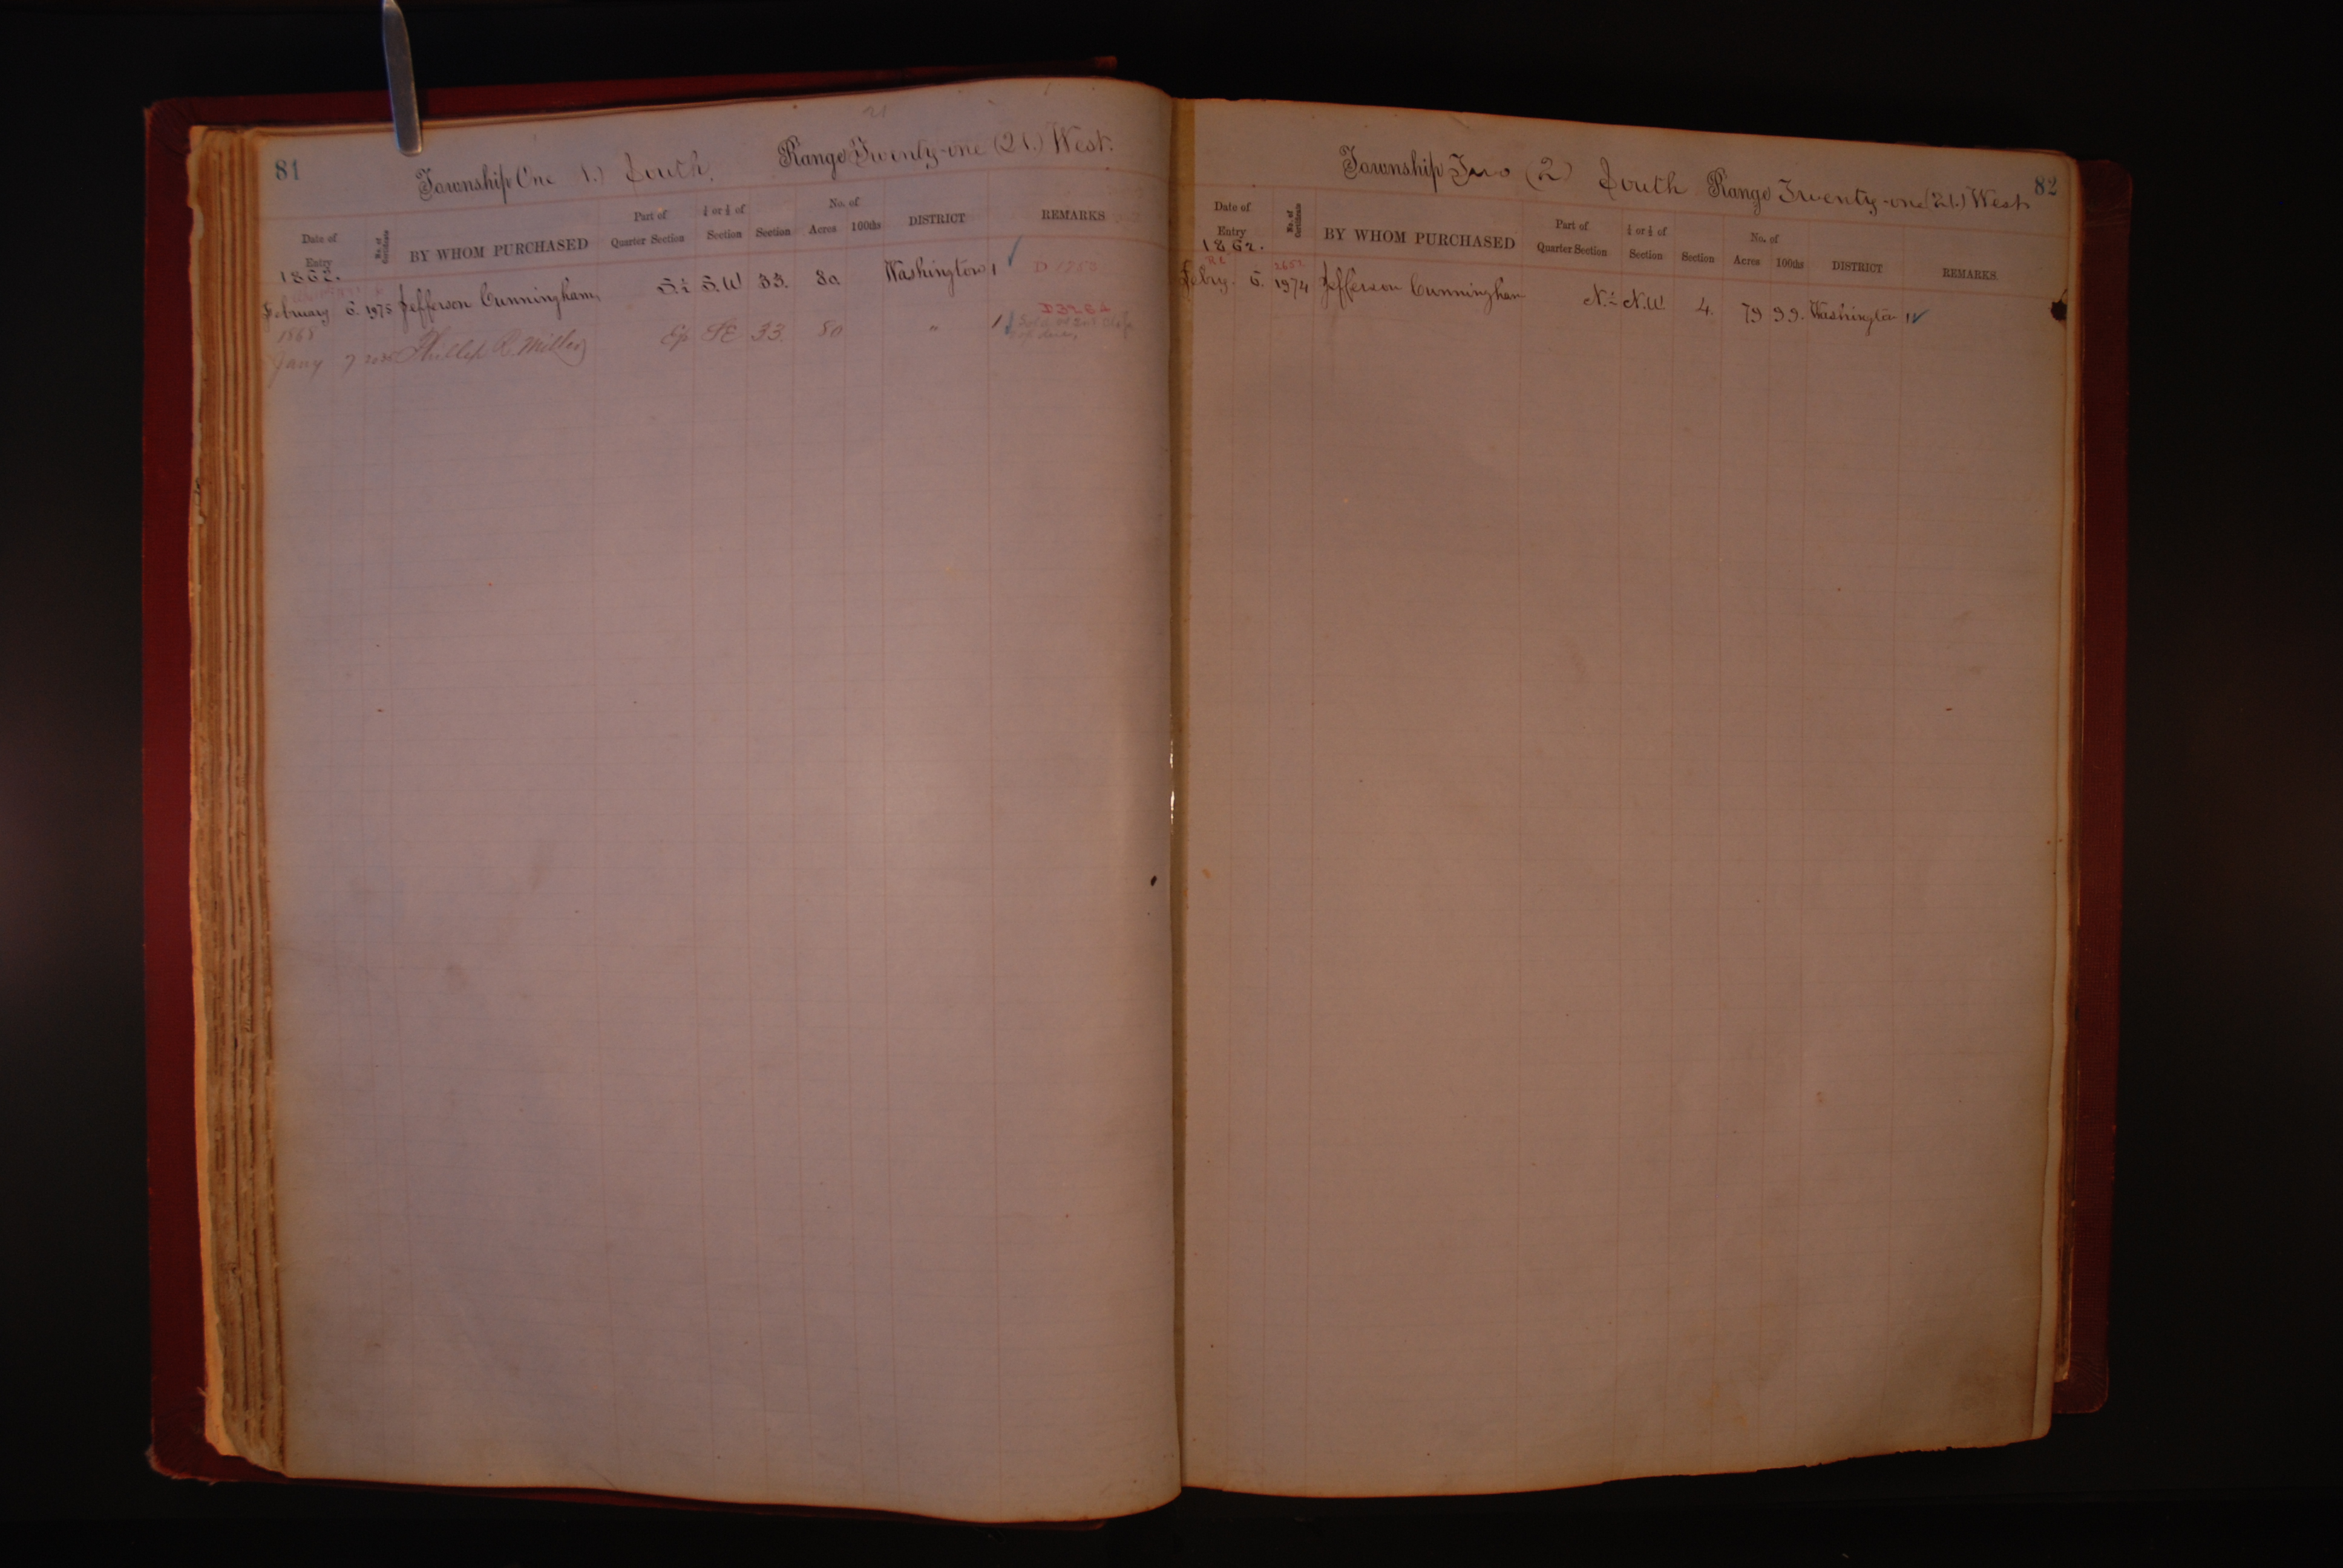 21
81
Township One 1.) South. Range Twenty-one (21.) West.
Date of Entry No. of Certificate BY WHOM PURCHASED Part of Quarter Section ½ or ¼ of Section Section No. of Acres 100ths DISTRICT REMARKS
1862.
February 6. 1975 Jefferson Cunningham, S.½ S.W 33. 80. Washington 1 ✓ D 1753
1868
D3264
Jany 7 Phillip R. Miller S.E. 33. 80 " 1
Township Two (2) South Range Twenty-one (21.) West. 82
Date of Entry No. of Certificate BY WHOM PURCHASED Part of Quarter Section ½ or ¼ of Section Section No. of Acres 100ths DISTRICT REMARKS
1862.
Febry. 6. 1974 Jefferson Cunningham N.½ N.W 4. 79 99. Washington 1 ✓